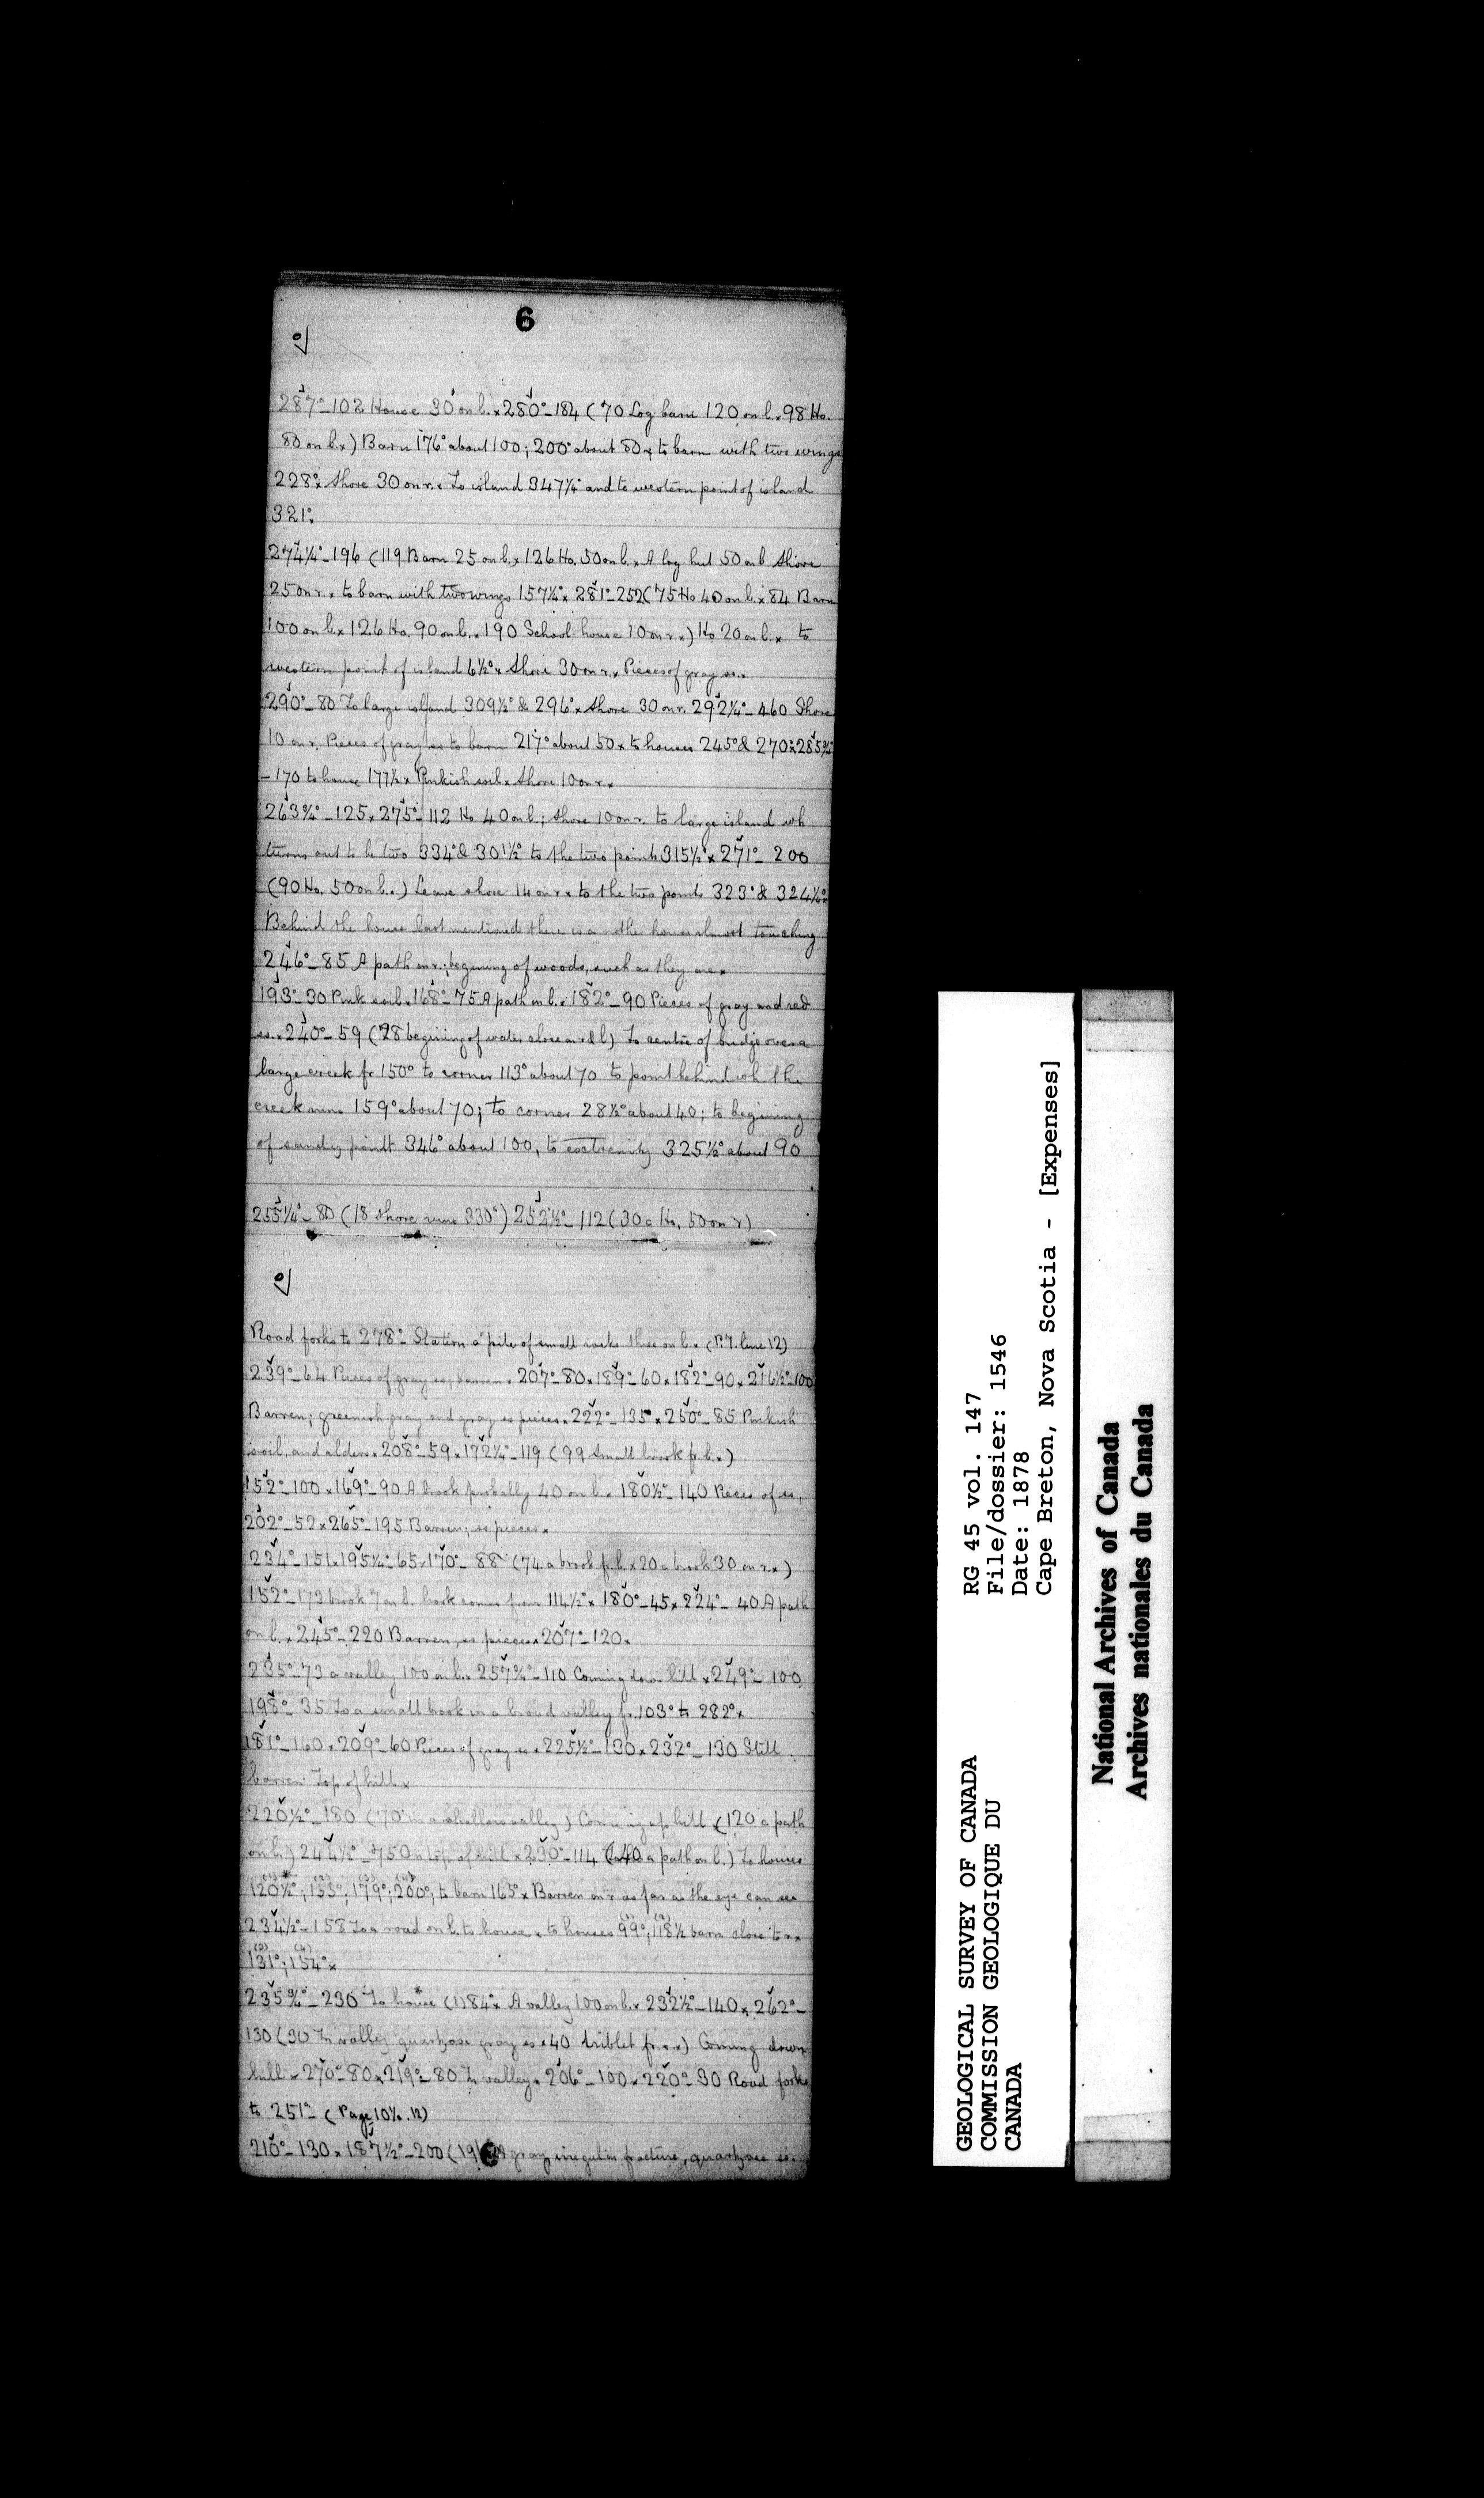 6
287°-102 House 30 on l. x 280°-184 (70 Log barn 120 on l. x 98 Ho.
80 on l. x) Barn 176° about 100; 200° about 80 x to barn with two wings
228° x Shore 30 on r. x To island 347¼° and to western point of island
321°.
274¼°-196 (119 Barn 25 on l. x 126 Ho. 50 on l. x A log hut 50 on l Shore
25 on r. x to barn with two wings 157¼° x 281°-252 (75 Ho 40 on l. x 84 Barn
100 on l. x 126 Ho. 90 on l. x 190 School house 10 on r. x) Ho 20 on l. x to
western point of island 6½° x Shore 30 on r. x Pieces of gray ss. x
290°-80 To large island 309½° & 296° x Shore 30 on r. 292¼°-460 Shore
10 on r. Pieces of gray ss to barn 217° about 50 x to houses 245° & 270° x 285¾°
-170 to house 177½ x Pinkish soil x Shore 10 on r. x
263¾°-125 x 275°-112 Ho 40 on l.; Shore 10 on r. to large island wh
turns out to be two 334° & 301½° to the two points 315½° x 271°-200
(90 Ho. 50 on l. x) Leave shore 14 on r. x to the two points 323° & 324¼°
Behind the house last mentioned there is another house almost touching
246°-85 A path on r.; begining of woods, such as they are x
193°-30 Pink soil x 168°-75 A path on l. x 182°-90 Pieces of gray and red
ss. x 240°-59 (28 begining of water close on r & l) To centre of bridge over a
large creek fr 150° to corner 113° about 70 to point behind wh the
creek runs 159° about 70; to corner 28½° about 40; to begining
of sandy point 346° about 100, to extremity 325½° about 90
255¼°-80 (18 Shore runs 330°) 252½°-112 (30 a Ho. 50 on r)
Road forks to 278°- Station a pile of small rocks thus on l. x (P. 7. line 12)
239°-64 Pieces of gray ss, barren x 207°-80 x 189°-60 x 182°-90 x 216½°-100
Barren; greenish gray and gray ss pieces x 222°-135 x 250°-85 Pinkish
soil, and alders x 208°-59 x 172¼°-119 (99 Small brook fr. l. x)
152°-100 x 169°-90 A brook probably 40 on l. x 180½°-140 Pieces of ss,
202°-52 x 265°-195 Barren; ss pieces x
234°-151 x 195¼°-65 x 170°-88 (74 a brook fr. l. x 20 a brook 30 on r. x)
152°-173 brook 7 on l. brook comes from 114½° x 180°-45 x 224°-40 A path
on l. x 245°-220 Barren, ss pieces x 207°-120 x
235°-73 a valley 100 on l. x 257¾°-110 Coming down hill x 249°-100
198°-35 To a small brook in a broad valley fr. 103° to 282° x
181°-160 x 209°-60 Pieces of gray ss x 225½°-130 x 232°-130 Still
barren Top of hill x
220½°-180 (70 in a shallow valley) Coming up hill (120 a path
on l.) 244½°-750 on top of hill x 230°-114 (40 a path on l.) To houses
120½°; 155°; 179°; 200°; to barn 165° x Barren on r. as far as the eye can see
234½°-158 To a road on l. to house x to houses 99°; 118½ barn close to x
131°; 154° x
235¾°-230 To house (1) 84° x A valley 100 on l. x 232½°-140 x 262°-
130 (30 In valley quartzose gray ss x 40 riblet fr. r. x) Coming down
hill x 270°-80 x 219°-80 In valley x 206°-100 x 220°-30 Road forks
to 251°- (Page 10 . 12)
210°-130 x 187½°-200 (19 gray irregular fracture, quartzose ss.
GEOLOGICAL SURVEY OF CANADA
COMMISSION GEOLOGIQUE DU
CANADA
RG 45 vol. 147
File/dossier: 1546
Date: 1878
Cape Breton, Nova Scotia - [Expenses]
National Archives of Canada
Archives nationales du Canada